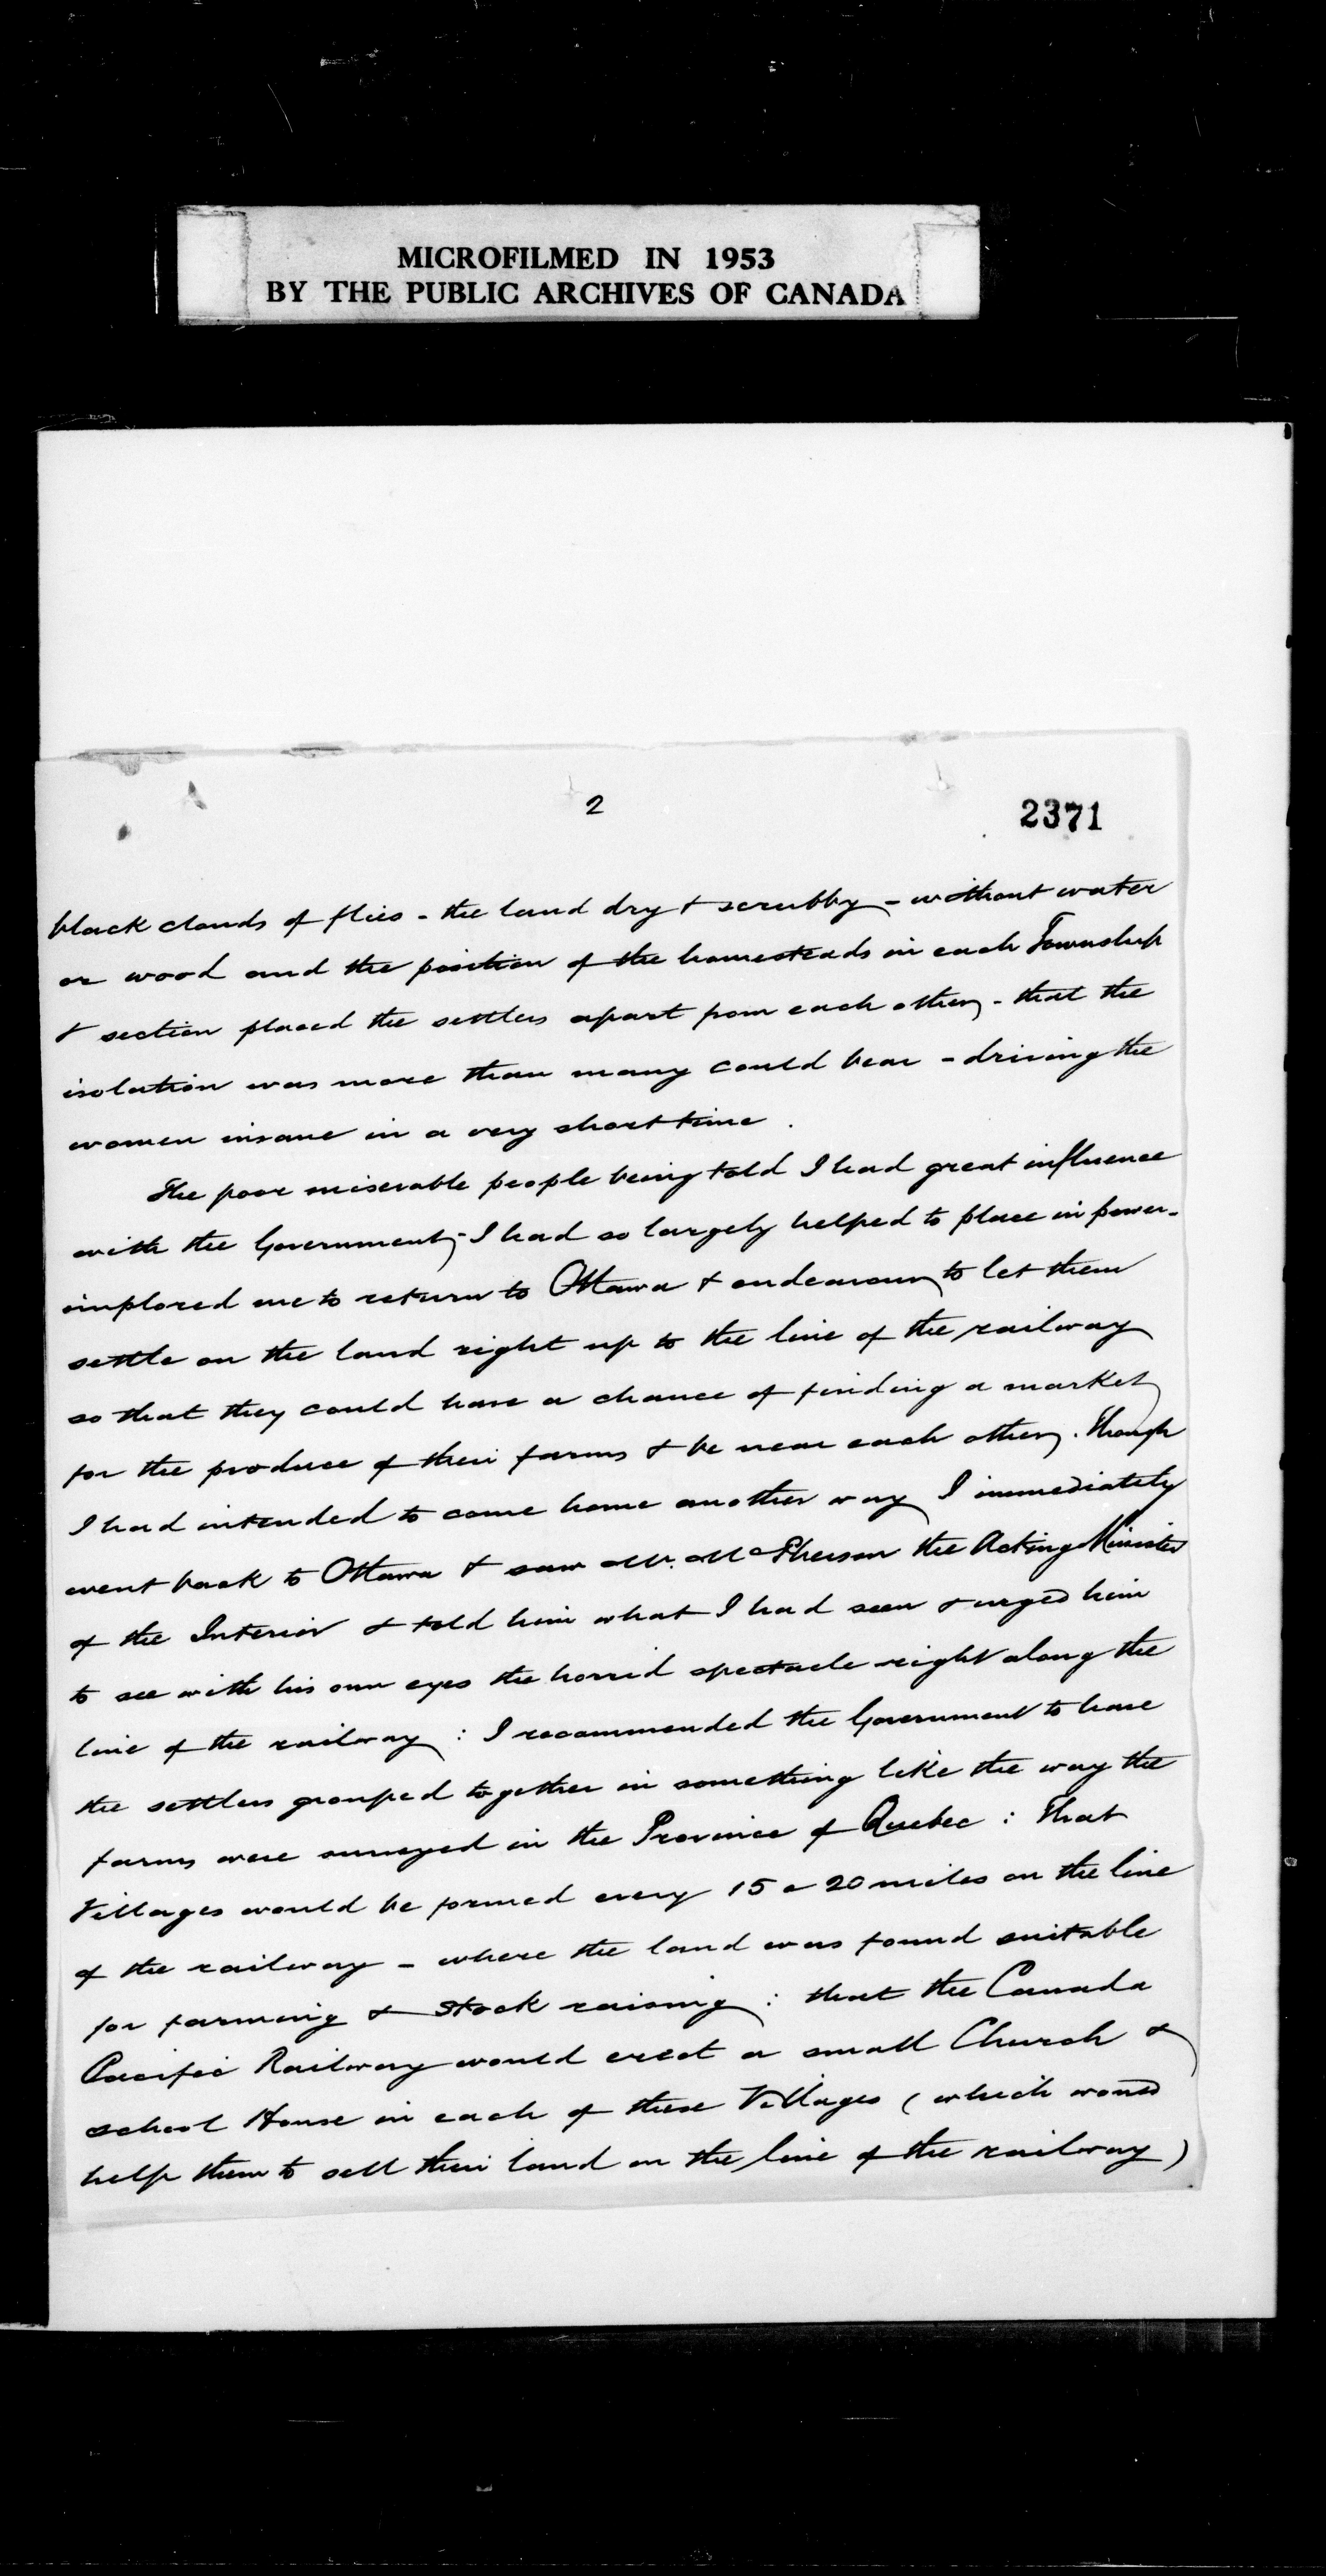 MICROFILMED IN 1953
BY THE PUBLIC ARCHIVES OF CANADA
2
2371
black clouds of flies - the land dry & scrubby - without water
or wood and the position of the homesteads in each Township
& section placed the settlers apart from each other - that the
isolation was more than many could bear - driving the
women insane in a very short time.
The poor miserable people being told I had great influence
with the Government, - I had so largely helped to place in power -
implored me to return to Ottawa & endeavour to let them
settle on the land right up to the line of the railway
so that they could have a chance of finding a market
for the produce of their farms & be near each other. Though
I had intended to come home another way I immediately
went back to Ottawa & saw Mr. McPherson the Acting Minister
of the Interior & told him what I had seen & urged him
to see with his own eyes the horrid spectacle right along the
line of the railway : I recommended the Government to have
the settlers grouped together in something like the way the
farms were surveyed in the Province of Quebec : That
Villages would be formed every 15 or 20 miles on the line
of the railway - where the land was found suitable
for farming & stock raising : that the Canada
Pacific Railway would erect a small Church &
school House in each of these Villages (which would
help them to sell their land on the line of the railway)